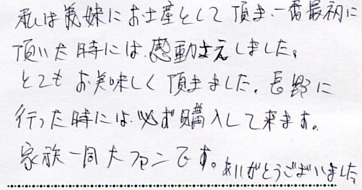 私は義妹にお土産として頂き一番最初に
頂いた時には感動さえしました。
とてもお美味しく頂きました。長野に
行った時には必ず購入して来ます。
家族一同大ファンです。ありがとうございました